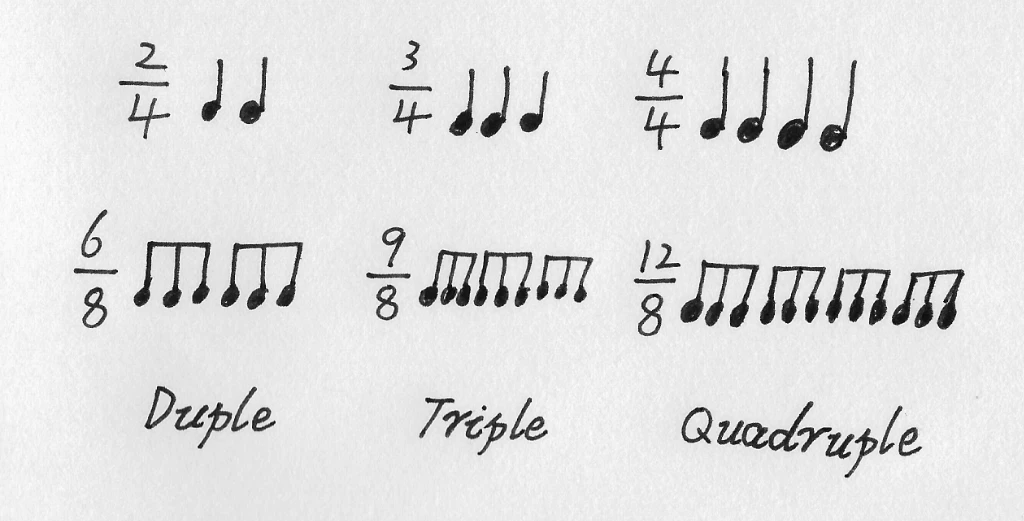 2/4 3/4 4/4
6/8 9/8 12/8
Duple Triple Quadruple